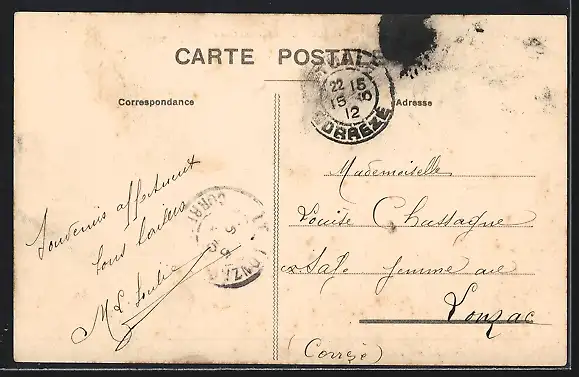 CARTE POSTALE
Correspondance
Adresse
22 15
15 - 6
12
CORRÈZE
Souvenirs affectueux
tous baisers
LONZAC
Mademoiselle
Louise Chassagne
Sage femme au
Lonzac
(Corrèze)